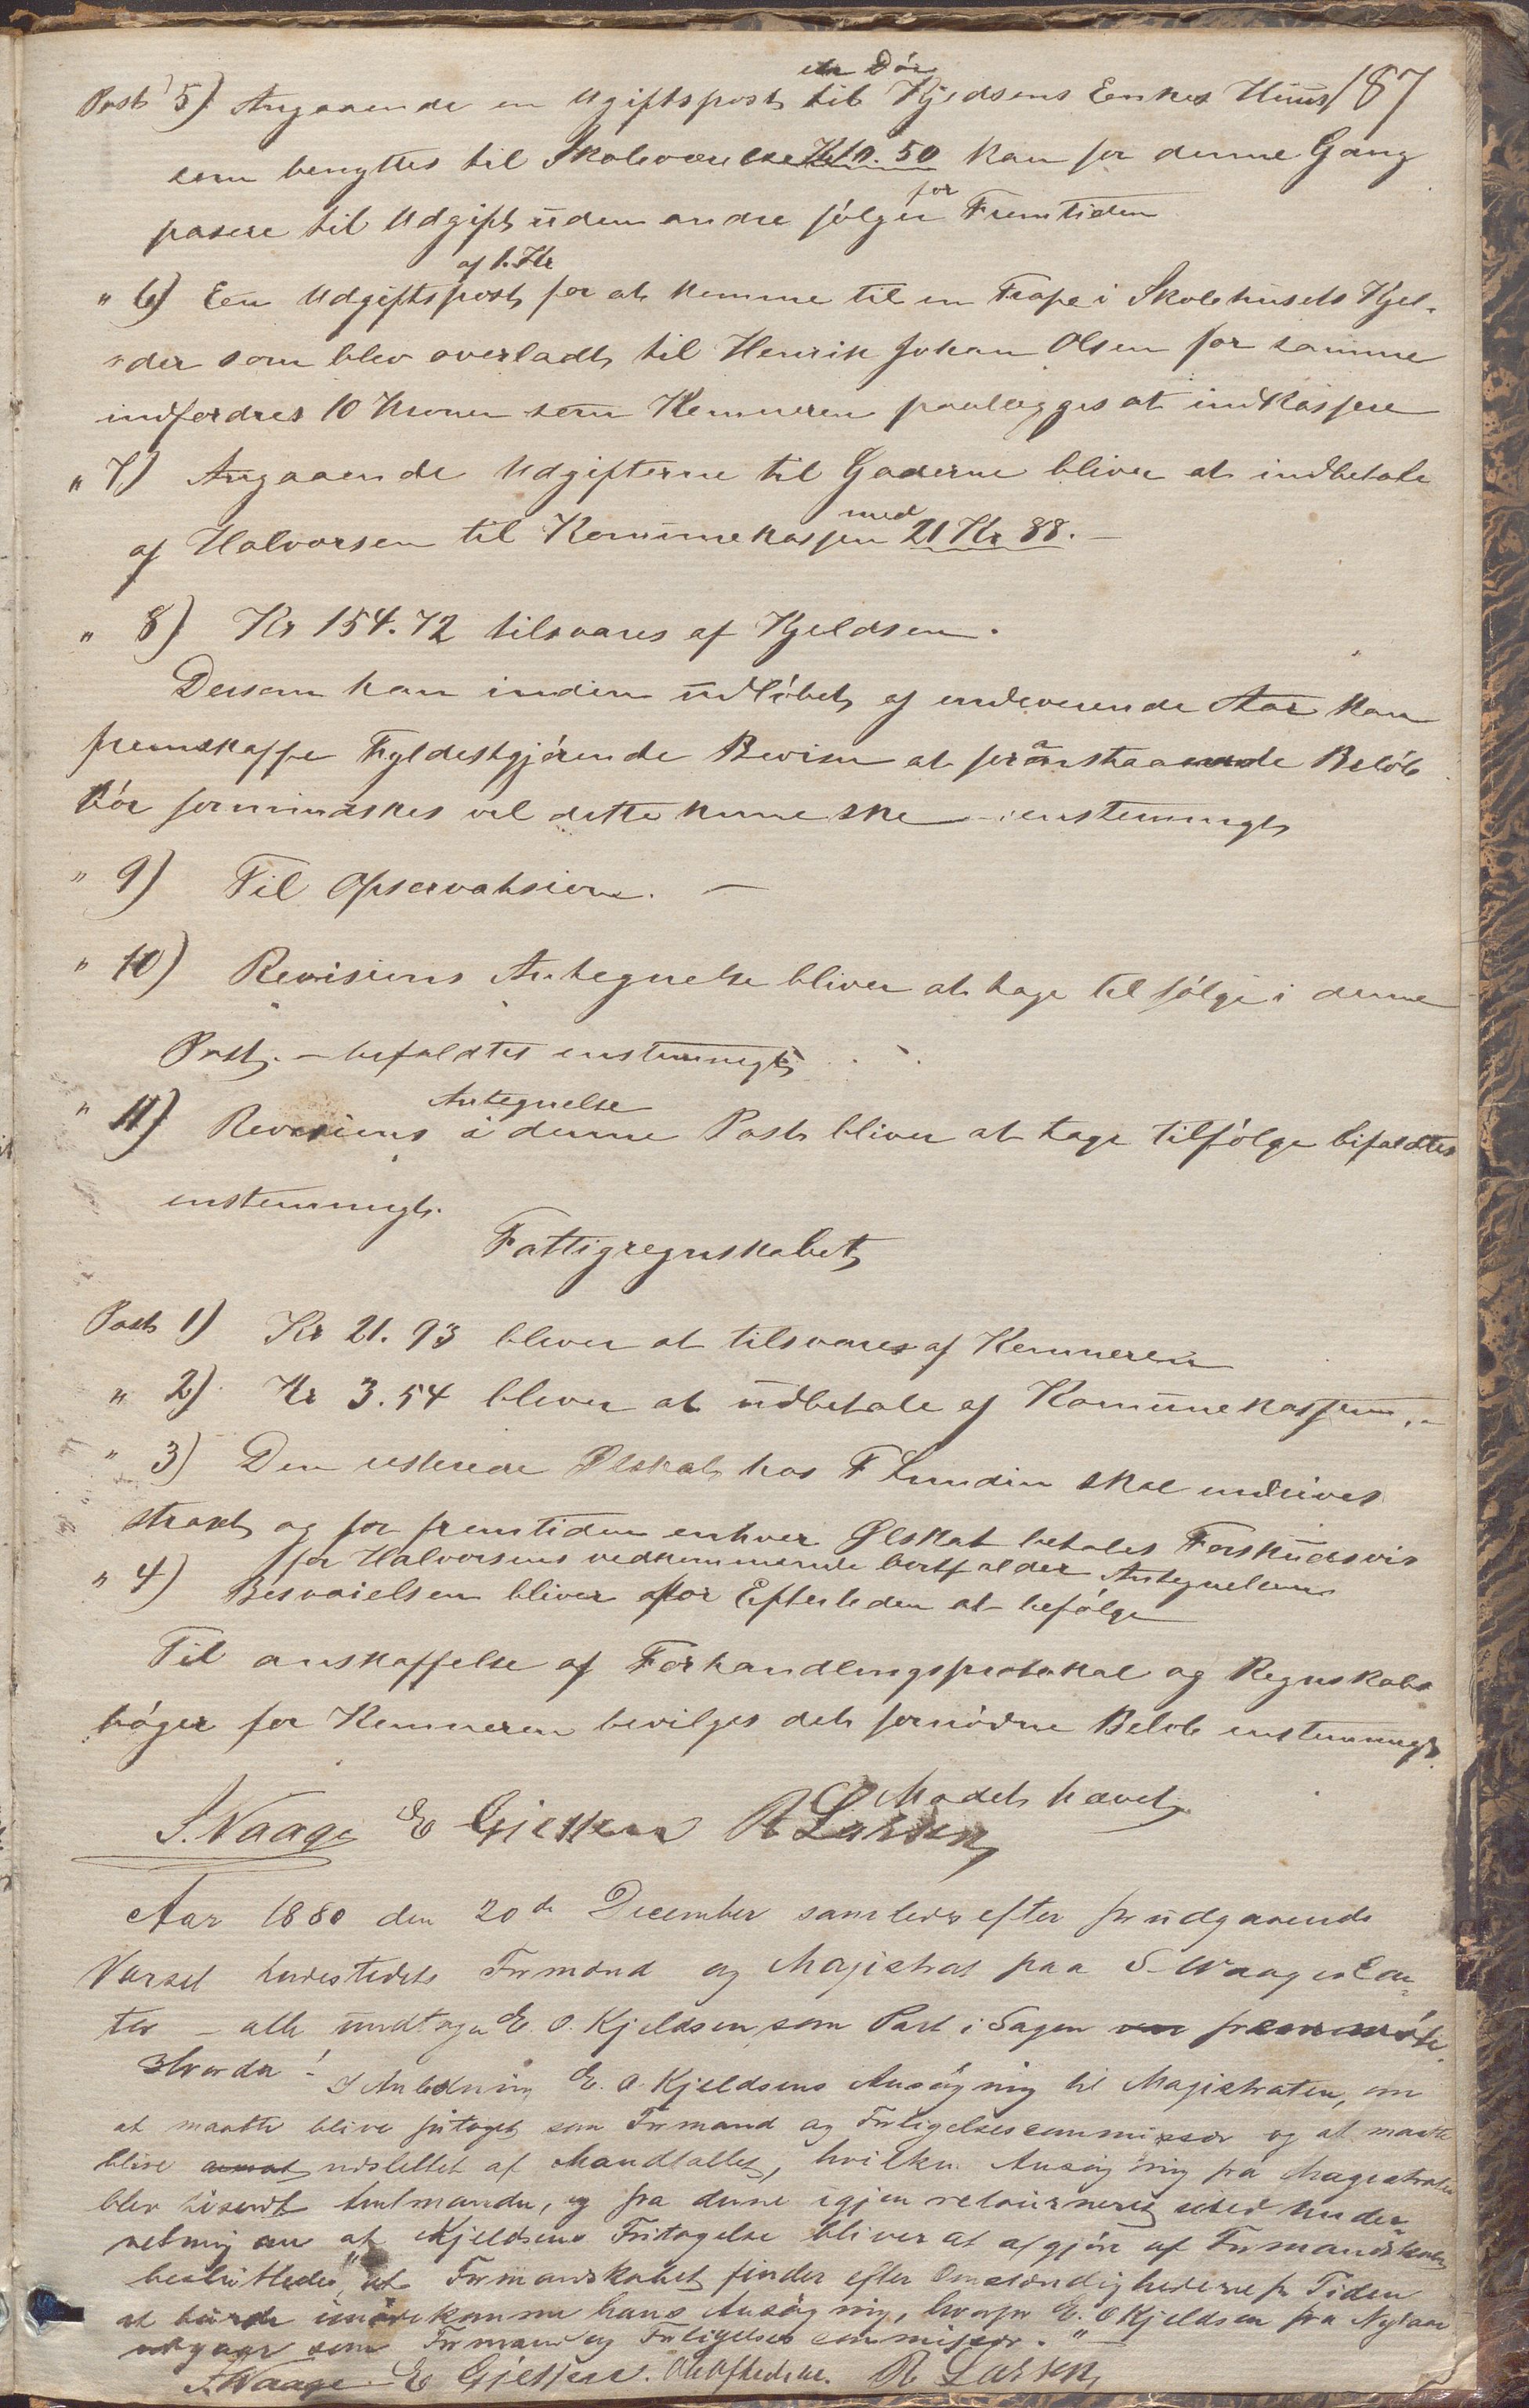 187
en Dør
Post 5) Angaaende en Ugiftspost til Kjedsens Enkes Huus
som benyttes til Skoleværelse Kr 0.50 kan for denne Gang
pasere til Udgift uden andre følger for Fremtiden
af 1. Kr
" 6) Een Udgiftspost for at komme til en Trape i Skolehusets Kjel-
der som blev overladt til Henrik Johan Olsen for samme
indfordres 10 Kroner som Kemneren paalegges at indkassere
" 7) Angaaende Udgifterne til Gaderne bliver at indbetale
af Halvorsen til Komunekassen med 21 Kr 88. —
" 8) Kr 154.72 tilsvares af Kjeldsen.
Dersom han inden udløbet af indeværende Aar kan
fremskaffe Fyldestgjørende Beviser at foranstaaende Beløb
bør formindskes vil dette kune ske — enstemmigt
" 9) Til Opservaksion. —
" 10) Revisiens Antegnelse bliver at tage til følge i denne
Post. — bifaldtes enstemmigt
Antegnelse
" 11) Revisiens i denne Post bliver at tage tilfølge bifaldtes
enstemmigt.
Fattigregnskabet
Post 1) Kr 21.93 bliver at tilsvares af Kemneren
" 2) Kr 3.54 bliver at udbetale af Komunekassen. –
" 3) Den resterede Ølskat hos F Lundin skal inddrives
strakt og for fremtiden enhver Ølskat betales Forskudsvis
for Halvorsens vedkommende bortfalder Antegnelsen
" 4) Besvarelsen bliver for Eftertiden at befølge
Til anskaffelse af Forhandlingsprotokol og Regnskabs
bøger for Kemneren bevilges det fornødne Beløb enstemmigt.
Mødet hævet
S. Waage E Gjessen R Larsen
Aar 1880 den 20de December samledes efter forudgaaende
Varsel herdestedets Formænd og Magistrat paa S. Waages Con-
tor — alle undtagen E. O. Kjeldsen, som Part i Sagen fremmøte.
Hvorda! I Anledning E. O. Kjeldsens Ansøgning til Magistraten, om
at maatte blive fritaget som Formand og Forligelsescommissær og at maatte
blive udslettet af Mandtallet, hvilken Ansøgning fra Magistraten
blev tilsendt Amtmanden, og fra denne igjen retourneret med Under-
retning om at Kjeldsens Fritagelse bliver at afgjøre af Formandskabet
besluttedes, "at Formandskabet finder efter Omstændighederne for Tiden
at burde imødekomme hans Ansøgning, hvorfor E. O Kjeldsen fra Nytaar
udgaar som Formand og Forligelses commissær. " —
S. Waage. E Gjessen. R Larsen